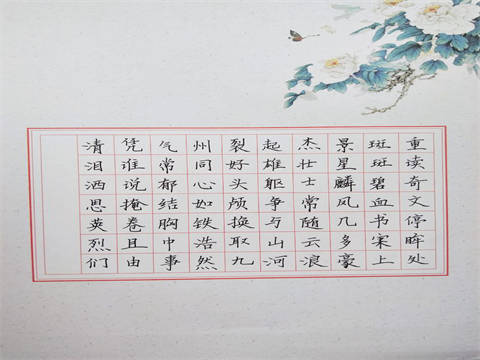 重读奇文停眸处
斑斑碧血书宋上
景星麟凤几多豪
杰壮士常随云浪
起雄躯争与山河
裂好头颅换取九
州同心如铁浩然
气常郁结胸中事
凭谁说掩卷且由
清泪洒思英烈们